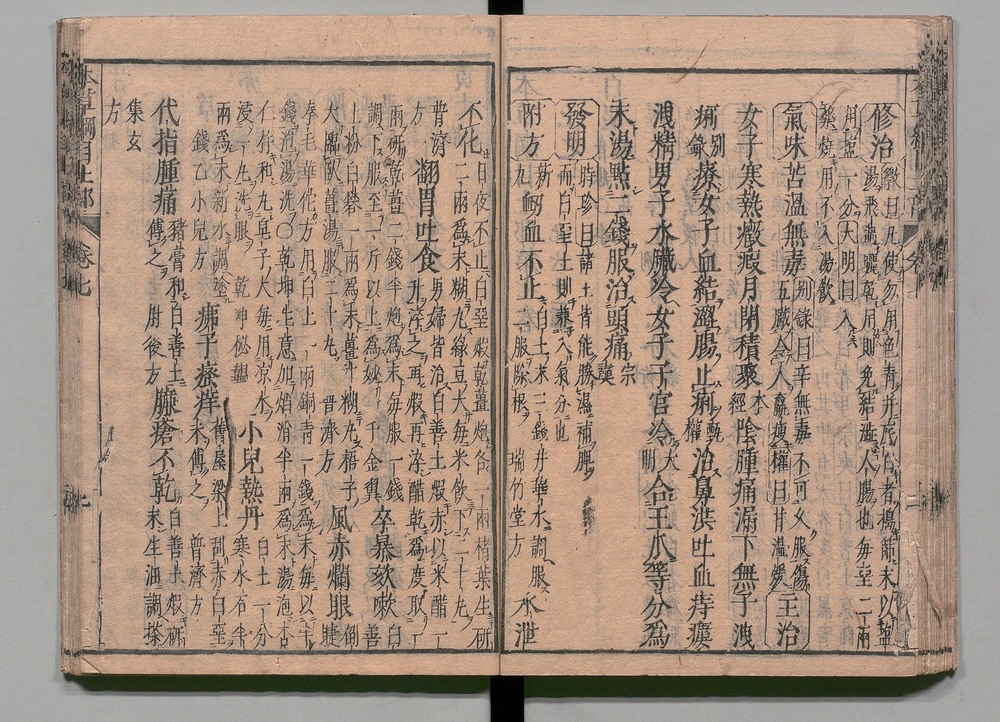 修治斆曰凡使勿用色青并底白者搗篩末以鹽
湯飛過曬乾用則免結澁人腸也每堊二兩
用鹽一分大明曰入
藥燒用不入湯飲
氣味苦溫無毒別錄曰辛無毒不可久服傷
五臟令人羸瘦權曰甘溫煖主治
女子寒熱癥瘕月閉積聚本經陰腫痛漏下無子洩
痢別錄療女子血結澀腸止痢甄權治鼻洪吐血痔瘻
洩精男子水臟冷女子子宮冷大明合王瓜等分為
末湯點二錢服治頭痛宗奭
發明時珍曰諸土皆能勝濕補脾
而白堊土則兼入氣分也
附方新九衂血不止白土末二錢井華水調服
二服除根 瑞竹堂方水泄
不化日夜不止白堊煅乾薑炮各一兩楮葉生研
二兩為末糊丸綠豆大每米飲下二十丸
普濟方翻胃吐食男婦皆治白善土煅赤以米醋一
升淬之再煅再淬醋乾為度取
一兩研乾薑二錢半炮為末每服一錢
調下服至一斤以上為妙 千金翼卒暴欬嗽白善
土粉白礬一兩為末薑汁糊丸梧子
大臨臥薑湯服二十丸 普濟方風赤爛眼倒睫
拳毛華佗方用白土一兩銅青一錢為末每以半
錢泡湯洗○乾坤生意加焰消半兩為末湯泡杏
仁杵和丸皂子大每用凉水
浸一丸洗眼 乾坤秘韞小兒熱丹白土一分
寒水石半
兩為末新水調塗
錢乙小兒方痱子瘙痒舊屋梁上刮赤白堊
末傅之 普濟方
代指腫痛豬膏和白善土
傅之 肘後方臁瘡不乾白善土煅研
末生油調搽
集玄
方